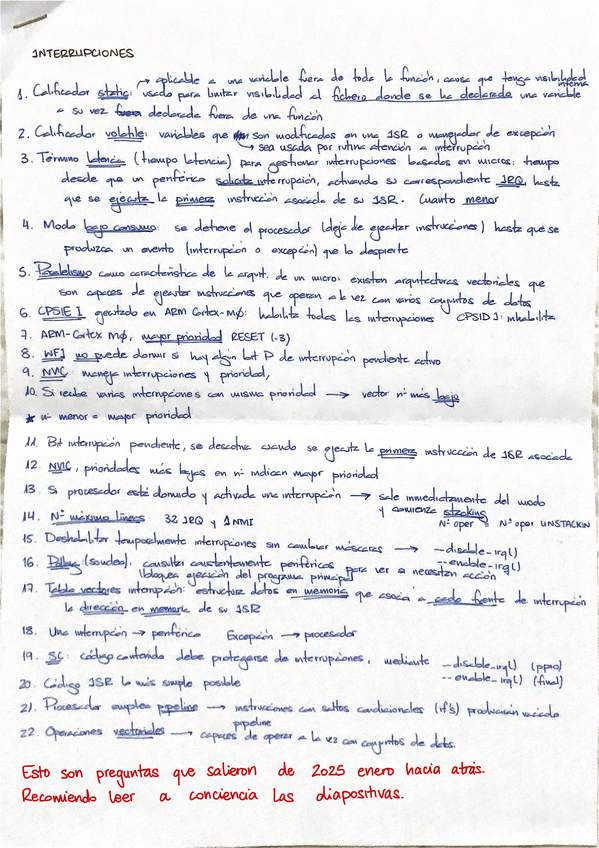 INTERRUPCIONES
→ aplicable a una variable fuera de toda la función, causa que tenga visibilidad interna
1. Calificador static: usado para limitar visibilidad al fichero donde se ha declarado una variable
a su vez declarada fuera de una función
2. Calificador volatile: variables que son modificadas en una ISR o manejador de excepción
↳ sea usada por rutina atención a interrupción
3. Término latencia (tiempo latencia) para gestionar interrupciones basadas en micros: tiempo
desde que un periférico solicita interrupción, activando su correspondiente IRQ, hasta
que se ejecuta la primera instrucción asociada de su ISR. Cuanto menor
4. Modo bajo consumo: se detiene el procesador (deja de ejecutar instrucciones) hasta que se
produzca un evento (interrupción o excepción) que lo despierte
5. Paralelismo como característica de la arquit. de un micro: existen arquitecturas vectoriales que
son capaces de ejecutar instrucciones que operan a la vez con varios conjuntos de datos
6. CPSIE I ejecutado en ARM Cortex-M0: habilita todas las interrupciones CPSID I: inhabilita
7. ARM-Cortex M0, mayor prioridad RESET (-3)
8. WFI no puede dormir si hay algún bit P de interrupción pendiente activo
9. NVIC: maneja interrupciones y prioridad,
10. Si recibe varias interrupciones con misma prioridad → vector nº más bajo
* nº menor = mayor prioridad
11. Bit interrupción pendiente, se desactiva cuando se ejecuta la primera instrucción de ISR asociada
12. NVIC, prioridades más bajas en nº indican mayor prioridad
13. Si procesador está dormido y activada una interrupción → sale inmediatamente del modo
y comienza stacking
14. Nº máximo líneas: 32 IRQ y 1 NMI Nº oper Nº oper UNSTACKIN
15. Deshabilitar temporalmente interrupciones sin cambiar máscaras → --disable_irq()
--enable_irq()
16. Polling (sondeo), consultar constantemente periféricos para ver si necesitan acción
(bloquea ejecución del programa principal)
17. Tabla vectores interrupción: estructura datos en memoria que asocia a cada fuente de interrupción
la dirección en memoria de su ISR
18. Una interrupción → periférico Excepción → procesador
19. SC: código contenido debe protegerse de interrupciones, mediante --disable_irq() (ppio)
--enable_irq() (final)
20. Código ISR lo más simple posible
21. Procesador emplea pipeline → instrucciones con saltos condicionales (if's) producirán vaciado
pipeline
22. Operaciones vectoriales → capaces de operar a la vez con conjuntos de datos.
Esto son preguntas que salieron de 2025 enero hacia atrás.
Recomiendo leer a conciencia las diapositivas.